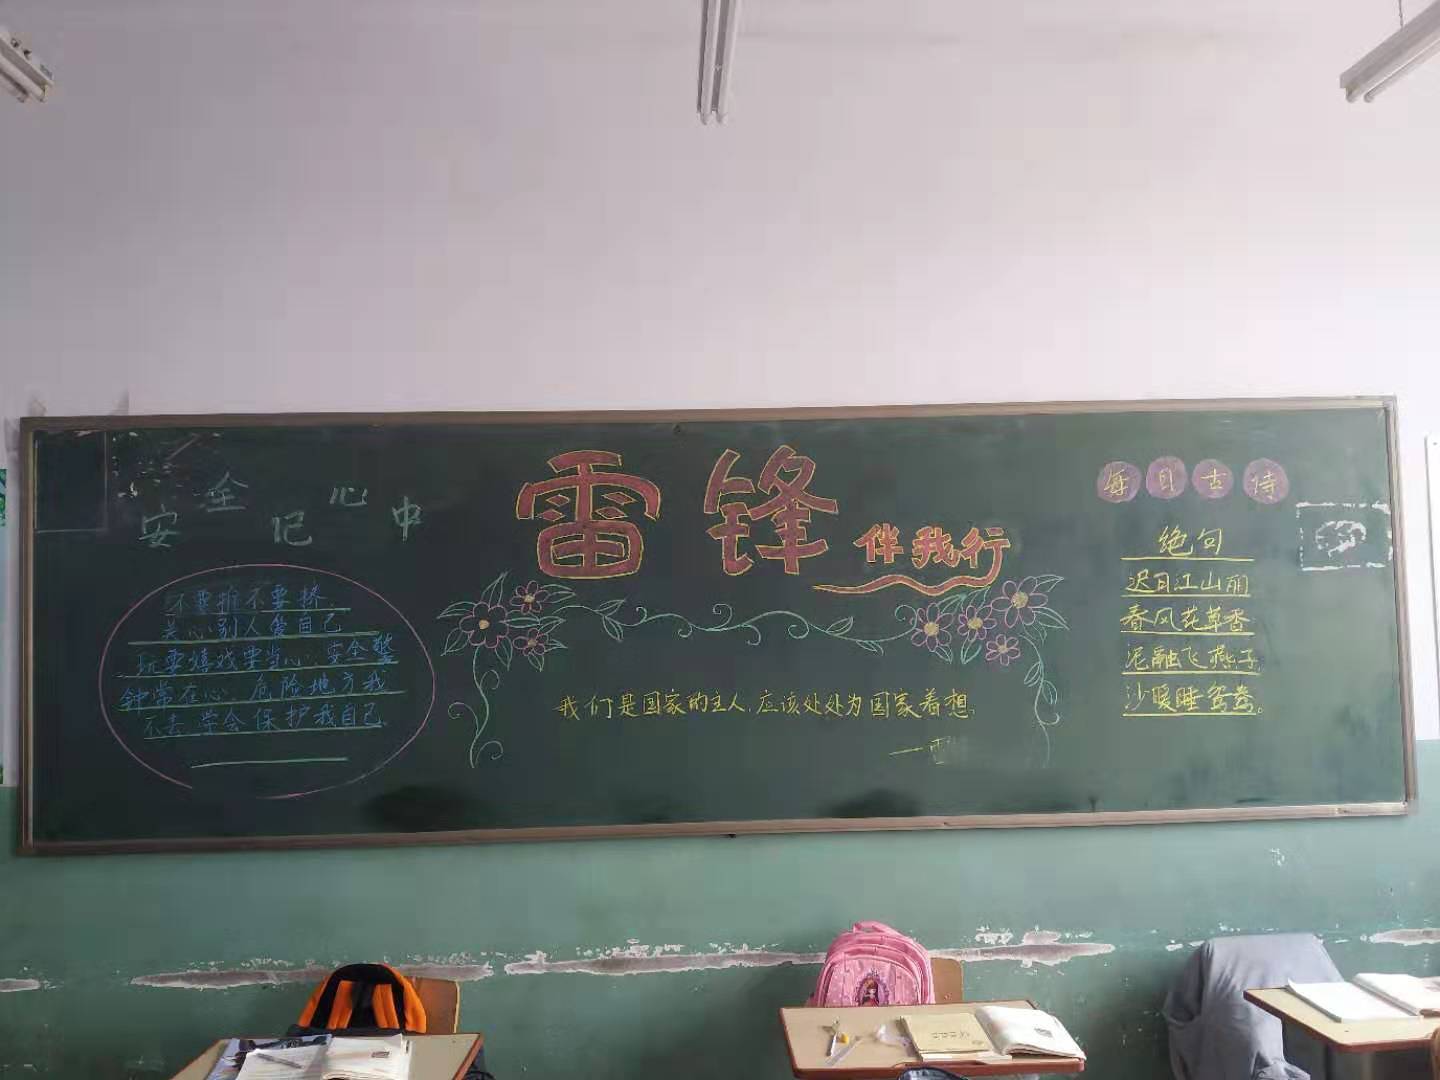 安全记心中
不要推不要挤
关心别人爱自己
玩耍嬉戏要当心.安全警
钟常在心.危险地方我
不去.学会保护我自己.
雷锋
伴我行
我们是国家的主人.应该处处为国家着想.
一雷
每日古诗
绝句
迟日江山丽
春风花草香
泥融飞燕子.
沙暖睡鸳鸯。